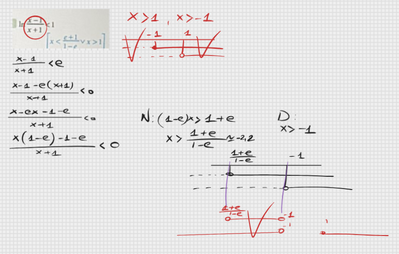 ln x-1/x+1 < 1
[x < e+1/1-e ∨ x > 1]
x > 1 , x > -1
-1 1
x-1/x+1 < e
x-1-e(x+1)/x+1 < 0
x-ex-1-e/x+1 < 0
x(1-e)-1-e/x+1 < 0
N: (1-e)x > 1+e
x > 1+e/1-e ≈ -2,2
D:
x > -1
1+e/1-e -1
1+e/1-e -1